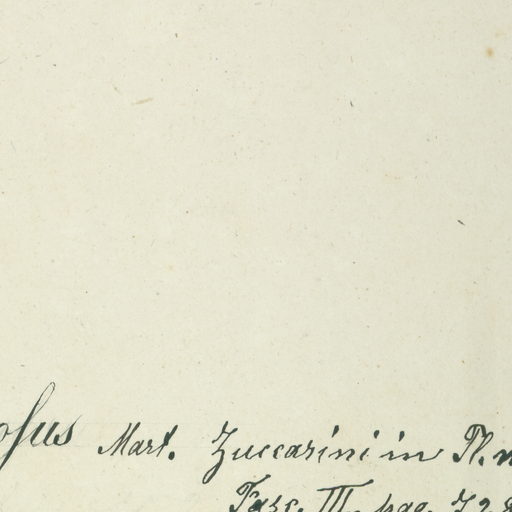 osus Mart. Zuccarini in Pl. n
Fasc. III. pag. 728